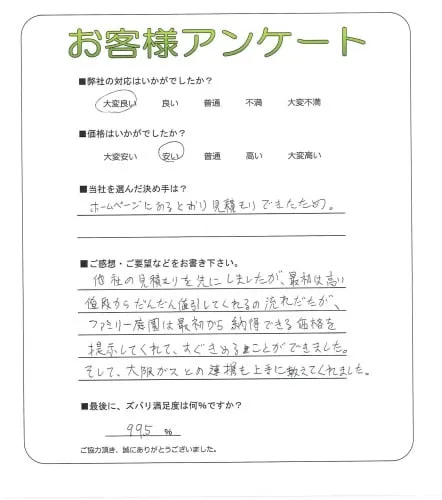 お客様アンケート
■弊社の対応はいかがでしたか?
大変良い 良い 普通 不満 大変不満
■価格はいかがでしたか?
大変安い 安い 普通 高い 大変高い
■当社を選んだ決め手は?
ホームページにあるとおり見積もりできたため。
■ご感想・ご要望などをお書き下さい。
他社の見積もりを先にしましたが、最初は高い
値段からだんだん値引してくれるの流れだたが、
ファミリー庭園は最初から納得できる価格を
提示してくれて、すぐきめることができました。
そして、大阪ガスとの連携も上手に教えてくれました。
■最後に、ズバリ満足度は何%ですか?
99.5 %
ご協力頂き、誠にありがとうございました。